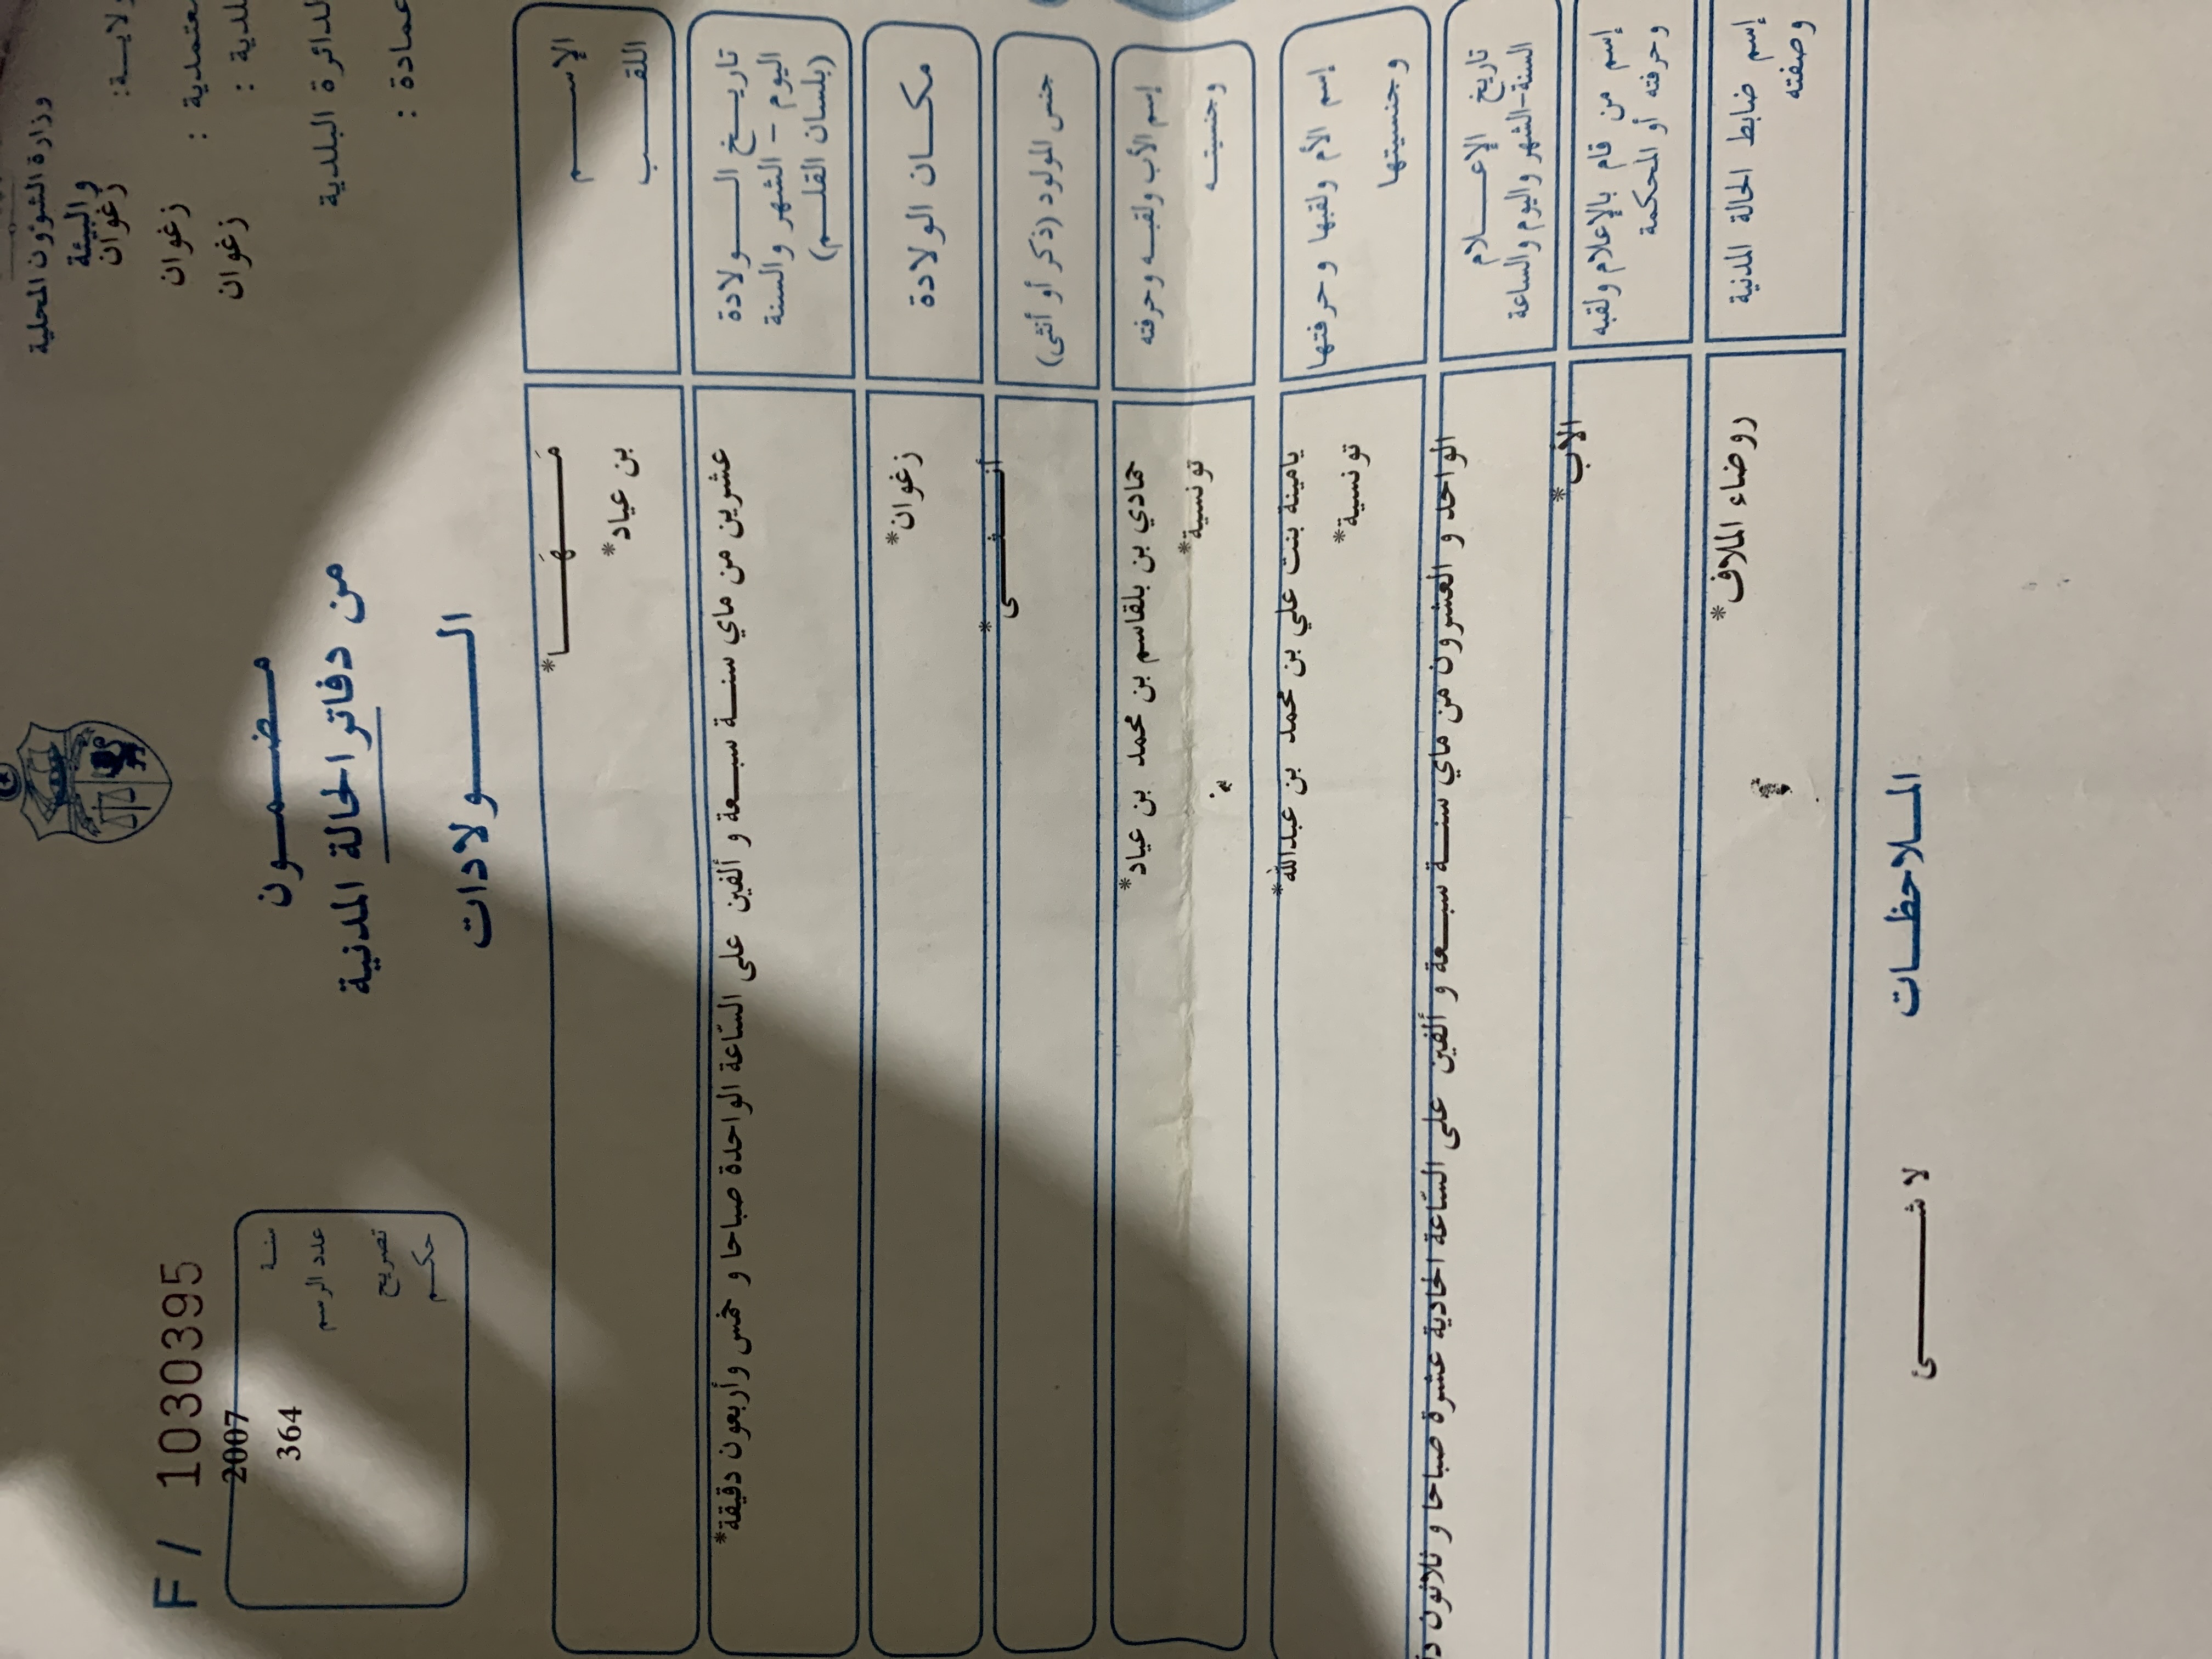 وزارة الشؤون المحلية
والبيئة
زغوان
زغوان
: زغوان
الدائرة البلدية
عمادة :
F / 1030395
سنة 2007
عدد الرسم 364
تصريح
حكم
مضمون
من دفاتر الحالة المدنية
الولادات
الإسم
مَهَا*
اللقب
بن عياد*
تاريخ الولادة
اليوم - الشهر والسنة
(بلسان القلم)
عشرين من ماي سنة سبعة و ألفين على السّاعة الواحدة صباحا و خمس وأربعون دقيقة*
مكان الولادة
زغوان*
جنس المولود (ذكر أو أنثى)
أنثى*
إسم الأب ولقبه وحرفته
وجنسيته
حمادي بن بلقاسم بن محمد بن عياد*
تونسية*
إسم الأم ولقبها وحرفتها
وجنسيتها
يامينة بنت علي بن محمد بن عبدالله*
تونسية*
تاريخ الإعلام
السنة-الشهر واليوم والساعة
الواحد و العشرون من ماي سنة سبعة و ألفين على السّاعة الحادية عشرة صباحا و ثلاثون
إسم من قام بالإعلام ولقبه
وحرفته أو المحكمة
الأب*
إسم ضابط الحالة المدنية
وصفته
روضاء الملاف*
الملاحظات
لا شئ